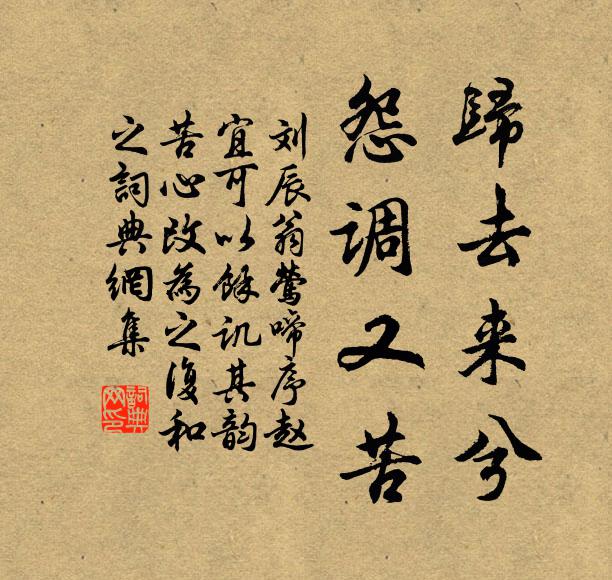 歸去来兮
怨调又苦
刘辰翁莺啼序赵
宜可以餘讥其韵
苦心改為之復和
之詞典網集
詞典網印